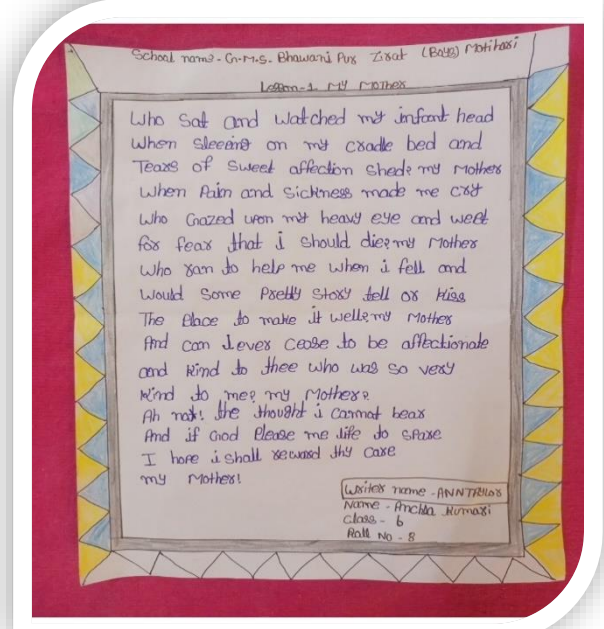 School name - G.M.S. Bhawani Pur Zirat (Boys) Motihari
Lesson-1 My Mother
Who Sat and Watched my infant head
When Sleeping on my cradle bed and
Tears of Sweet affection shed? my Mother
When Pain and Sickness made me cry
Who Gazed upon my heavy eye and weet
for fear that i should die? my Mother
Who ran to help me when i fell and
Would Some Pretty Story tell or Kiss
The Place to make it well? my Mother
And can I ever cease to be affectionate
and Kind to thee who was so very
Kind to me? my Mother?
Ah not! the thought i cannot bear
And if God Please me life to spare
I hope i shall reward thy care
my Mother!
Writer name - ANN TAYLOR
Name - Anchla Kumari
Class - 6
Roll No - 8